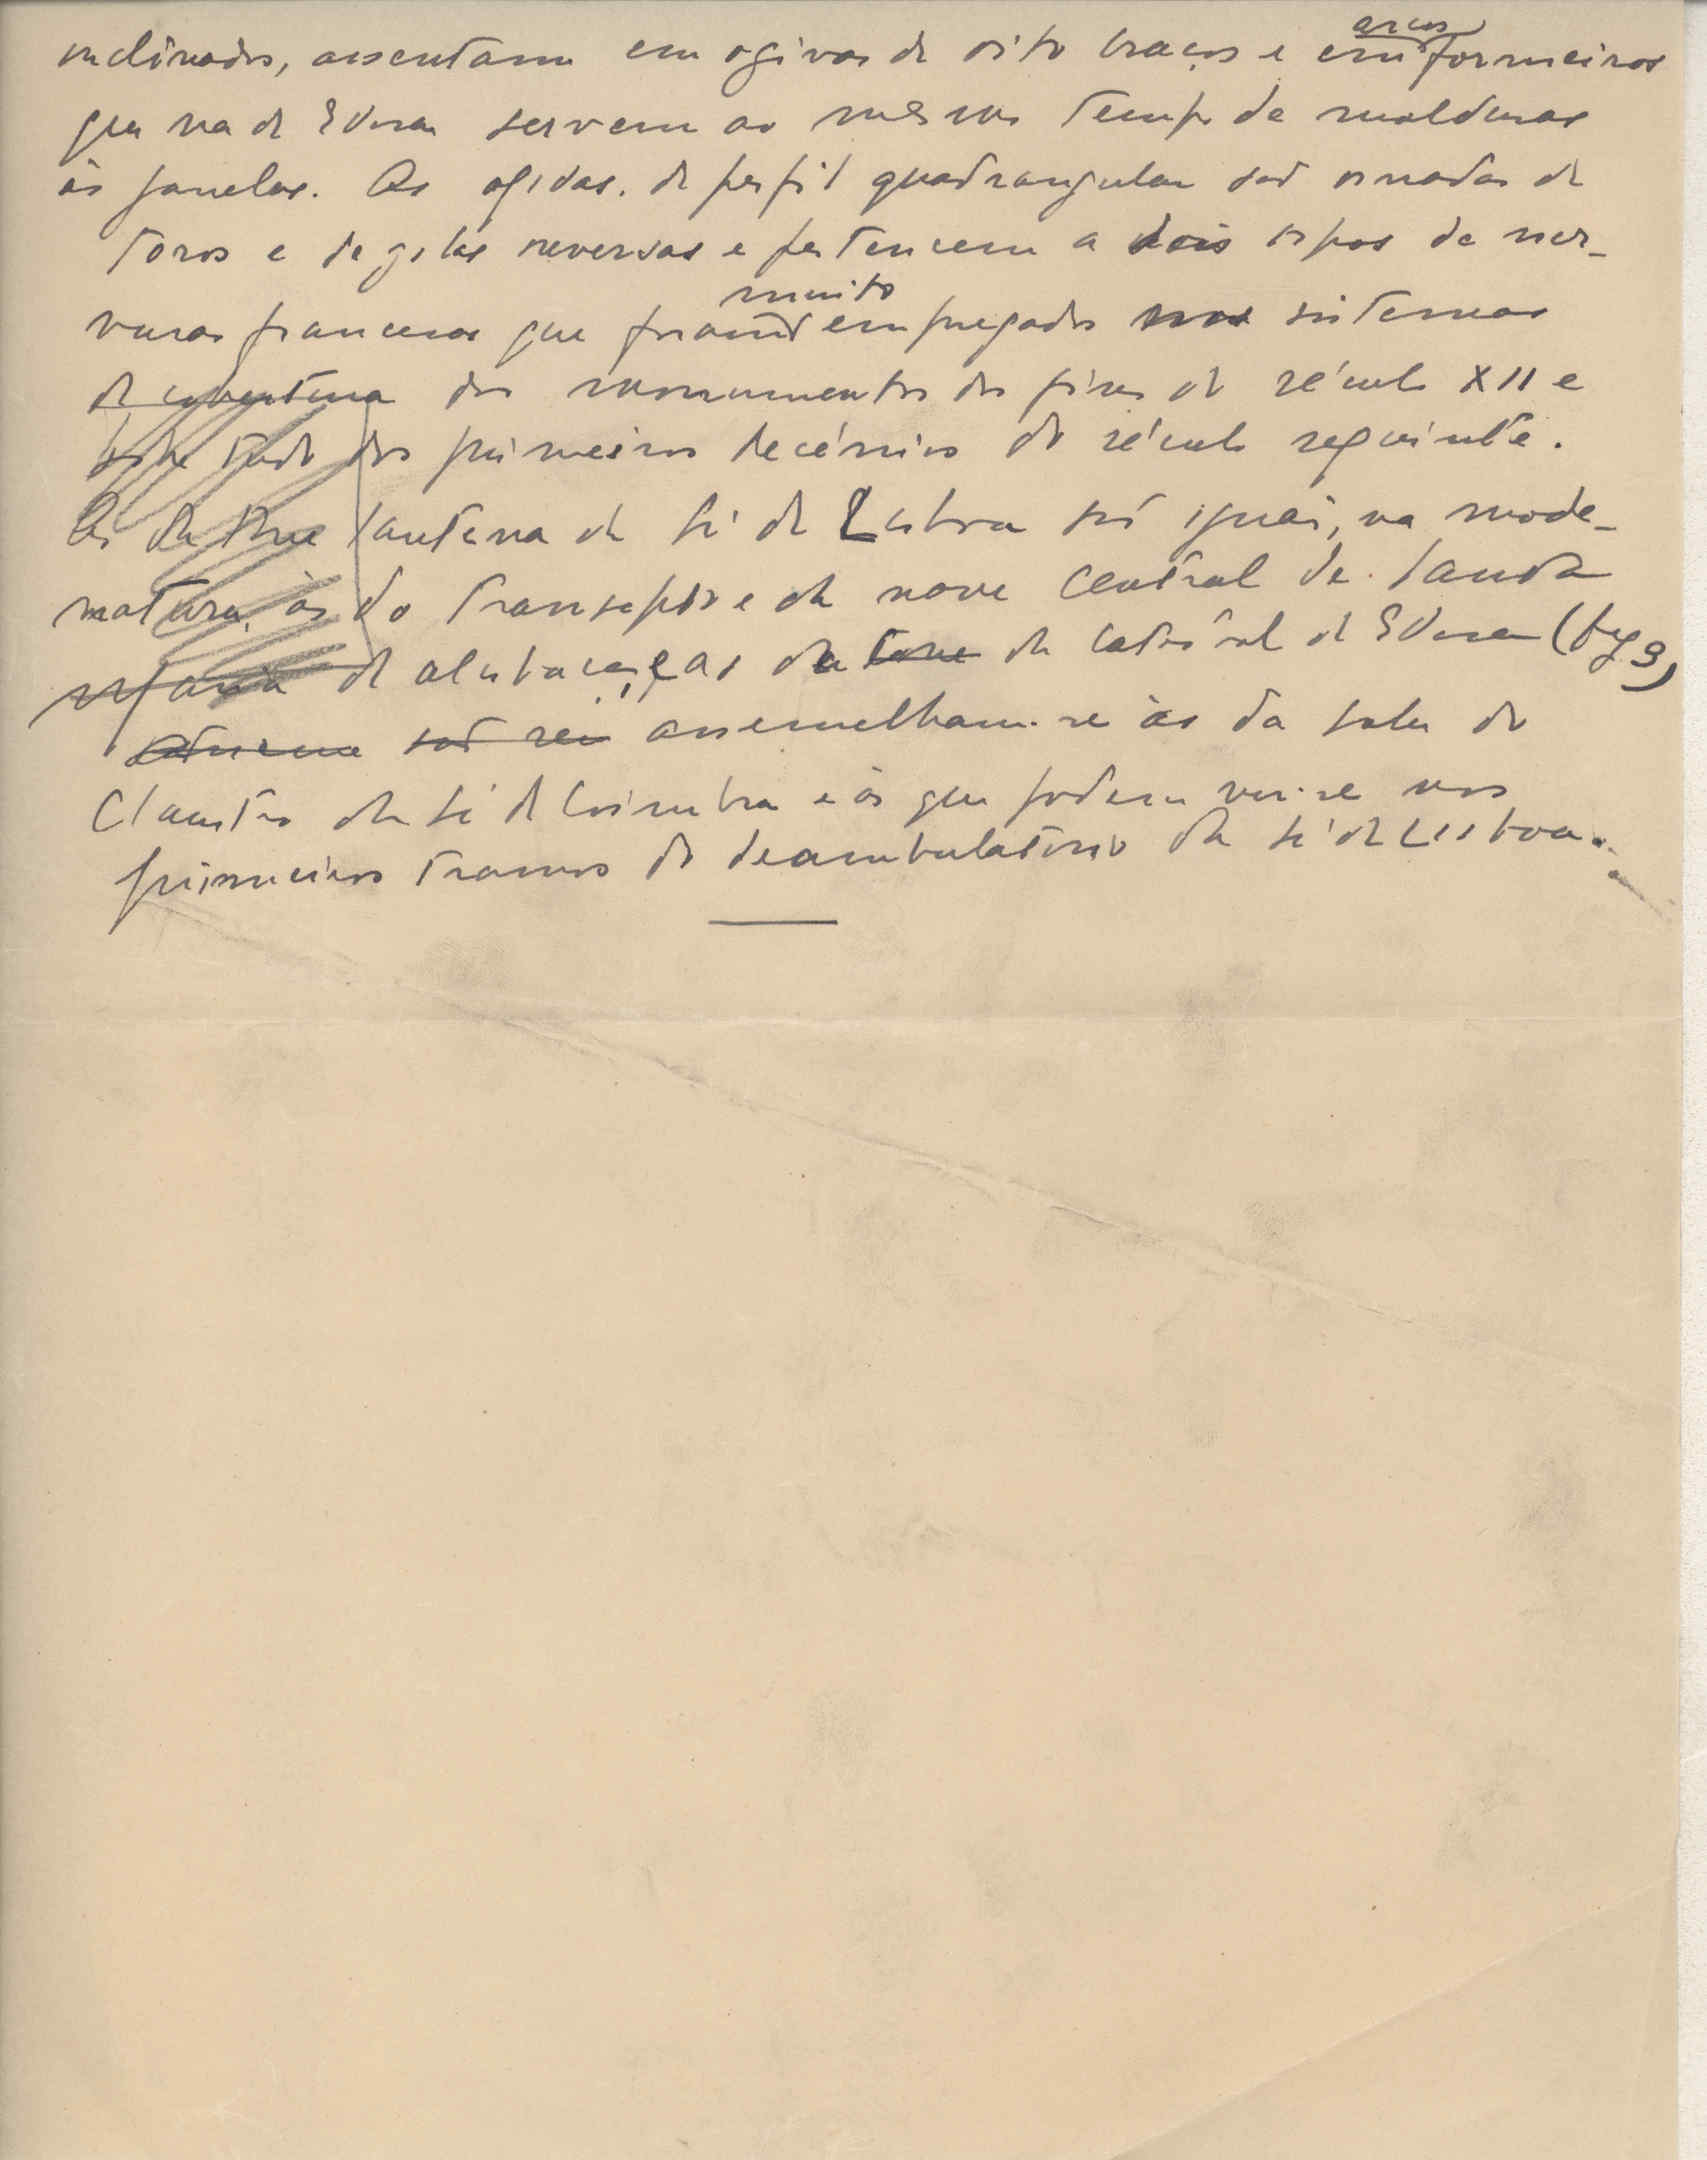 inclinados, assentam em ogivas de oito braços e em arcos formeiros
que na de Évora servem ao mesmo tempo de molduras
às janelas. As ogivas de perfil quadrangular são ornadas de
toros e de golas reversas e pertencem a dois tipos de ner-
vuras francesas que foram muito empregados nos sistemas
de cobertura dos monumentos dos fins do século XII e
sobre tudo dos primeiros decénios do século seguinte.
As da torre lanterna da Sé de Lisboa são iguais, na mode-
natura, às do transepto e da nave central de Santa
Maria de Alcobaça; as da torre da catedral de Évora (fig 3)
são assemelham-se às da sala do
Claustro da Sé de Coimbra e às que podem ver-se nos
primeiros tramos do deambulatório da Sé de Lisboa.